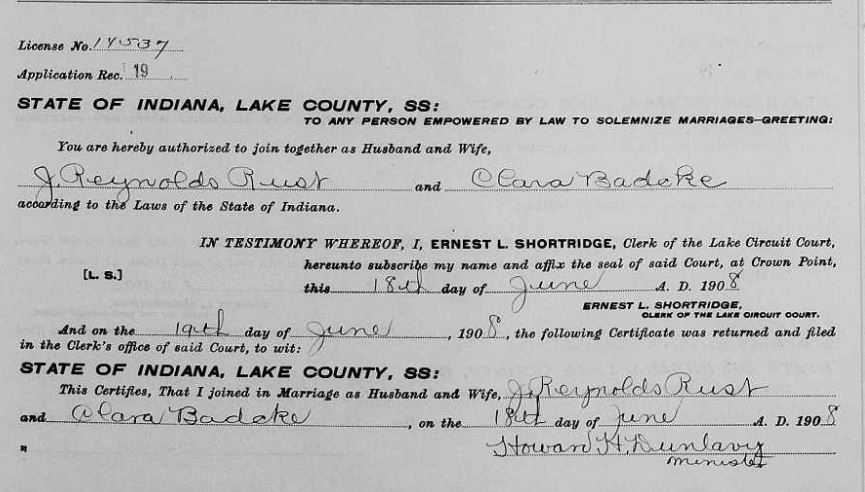 License No. 14537
Application Rec. 19
STATE OF INDIANA, LAKE COUNTY, SS:
TO ANY PERSON EMPOWERED BY LAW TO SOLEMNIZE MARRIAGES—GREETING:
You are hereby authorized to join together as Husband and Wife,
J. Reynolds Rust and Clara Badcke
according to the Laws of the State of Indiana.
IN TESTIMONY WHEREOF, I, ERNEST L. SHORTRIDGE, Clerk of the Lake Circuit Court,
hereunto subscribe my name and affix the seal of said Court, at Crown Point,
[L. S.]
this 18th day of June A. D. 1908
ERNEST L. SHORTRIDGE,
CLERK OF THE LAKE CIRCUIT COURT.
And on the 19th day of June, 1908, the following Certificate was returned and filed
in the Clerk's office of said Court, to wit:
STATE OF INDIANA, LAKE COUNTY, SS:
This Certifies, That I joined in Marriage as Husband and Wife, J. Reynolds Rust
and Clara Badcke, on the 18th day of June A. D. 1908
Howard H. Dunlavy
Minister